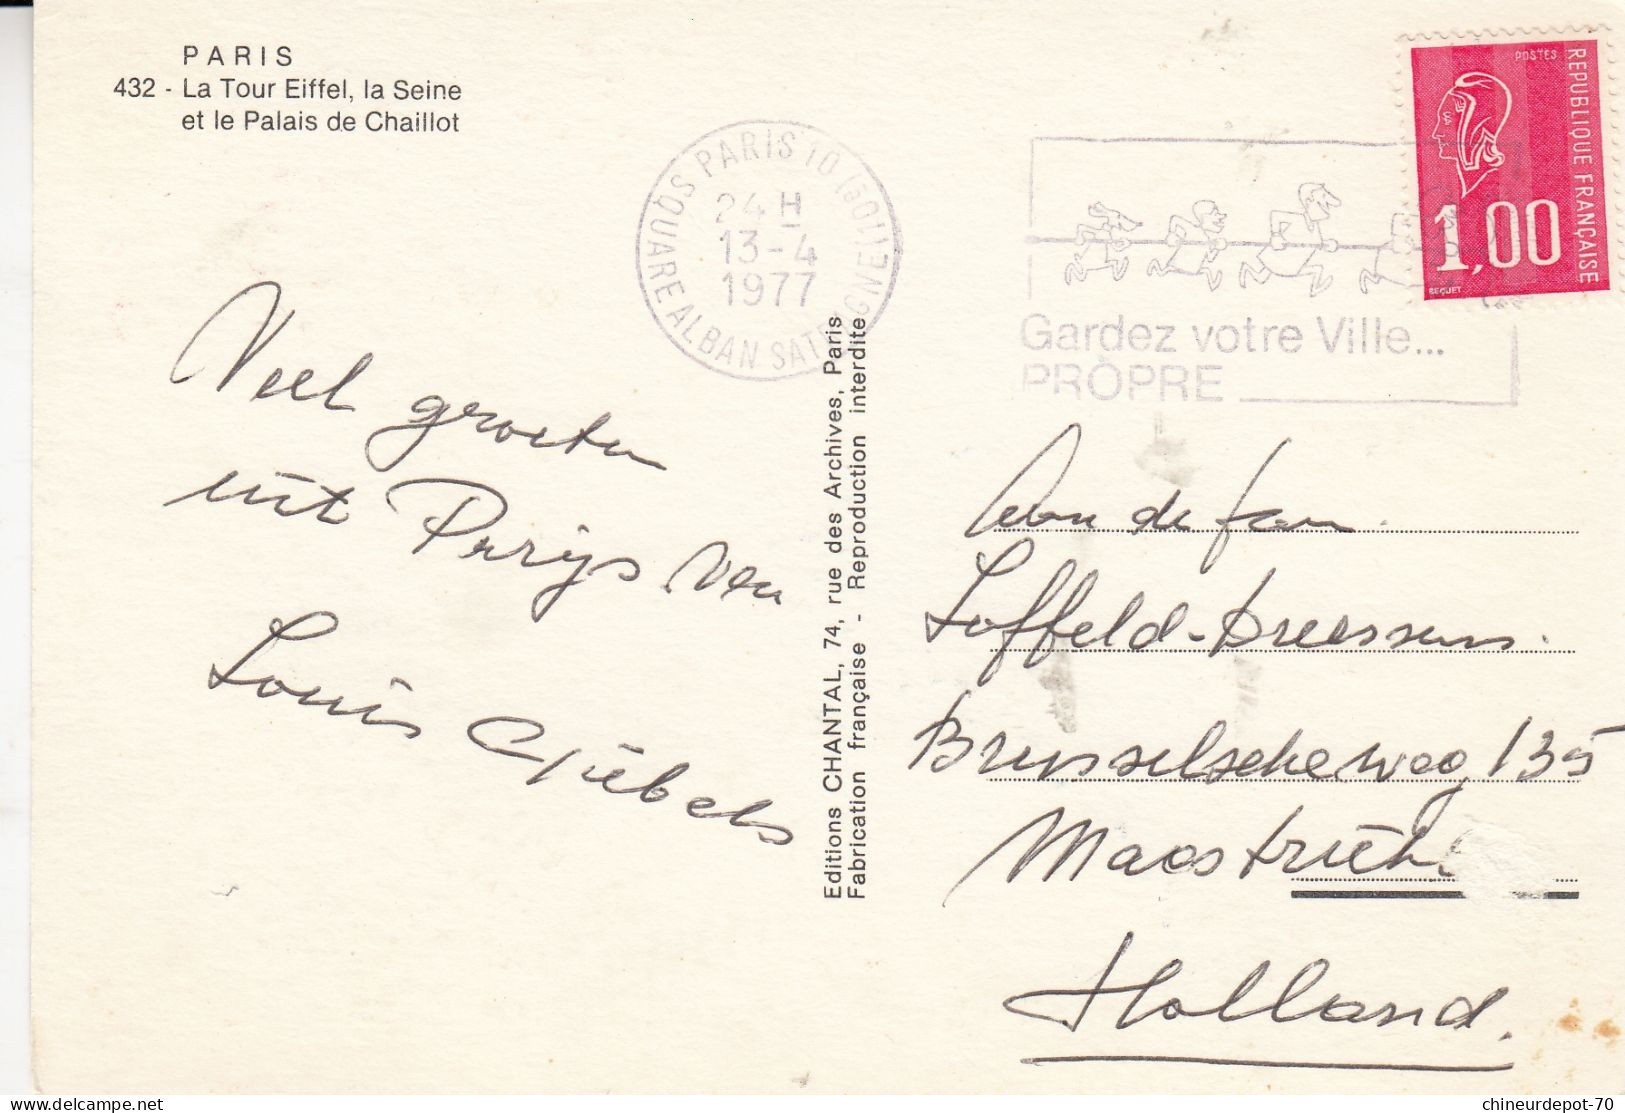 PARIS
432 - La Tour Eiffel, la Seine
et le Palais de Chaillot
PARIS 10 (5011)
SQUARE ALBAN SATRAGNE
24 H
13-4
1977
Gardez votre Ville...
PROPRE
POSTES
REPUBLIQUE FRANÇAISE
1,00
BEQUET
Veel groeten
uit Parijs van
Louis Giebels
Editions CHANTAL, 74, rue des Archives, Paris
Fabrication française - Reproduction interdite
Aan de fam.
Loffeld-Dreessens.
Brusselscheweg 135
Maastricht
Holland.
chineurdepot-70